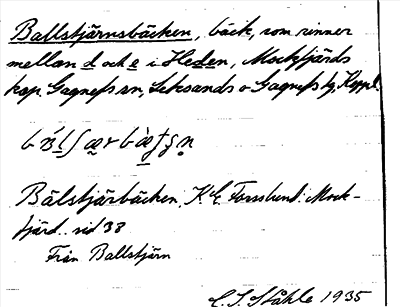 Ballstjärnsbäcken, bäck, som rinner
mellan d och e i Heden, Mockfjärds
kap. Gagnefs sn, Leksands o Gagnefs tg, Koppl.
Bälstjärbäcken, K. E. Forsslund: Mock-
fjärd.. sid 38
Från Ballstjärn
E. I. Ståhle 1935